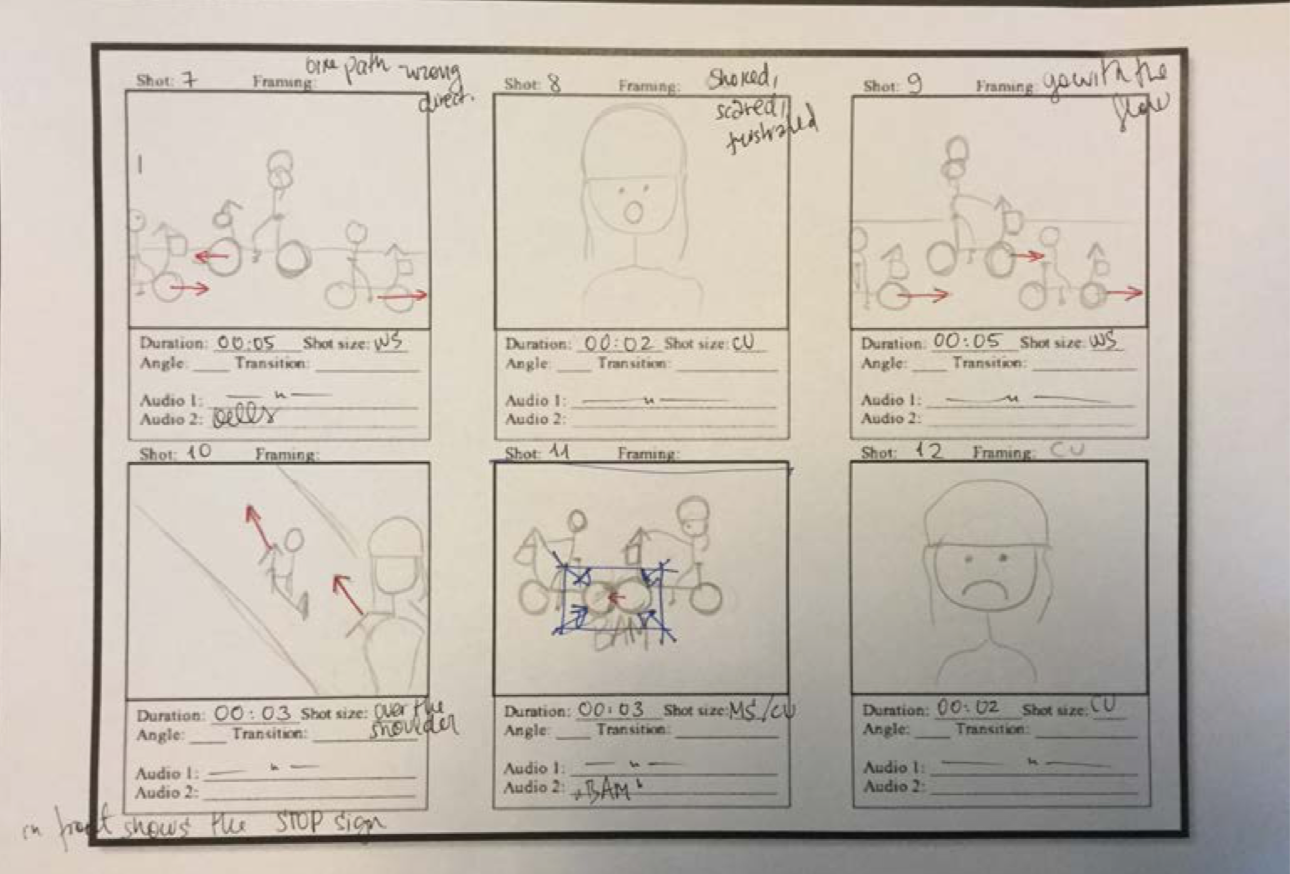 Shot: 7 Framing: bike path - wrong
direct.
Duration: 00:05 Shot size: WS
Angle: Transition:
Audio 1: — " —
Audio 2: bells
Shot: 8 Framing: Shoked,
scared,
frustrated
Duration: 00:02 Shot size: CU
Angle: Transition:
Audio 1: — " —
Audio 2:
Shot: 9 Framing: go with the
flow
Duration: 00:05 Shot size: WS
Angle: Transition:
Audio 1: — " —
Audio 2:
Shot: 10 Framing:
Duration: 00:03 Shot size: over the
Angle: Transition: shoulder
Audio 1: — " —
Audio 2:
in front shows the STOP sign
Shot: 11 Framing:
BAM
Duration: 00:03 Shot size: MS/CU
Angle: Transition:
Audio 1: — " —
Audio 2: "BAM"
Shot: 12 Framing: CU
Duration: 00:02 Shot size: CU
Angle: Transition:
Audio 1: — " —
Audio 2: